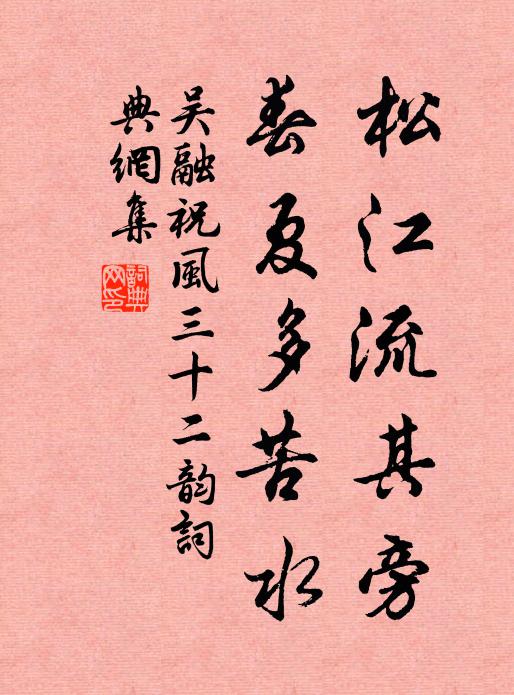 松江流其旁
春夏多苦水
吴融祝風三十二韵詞
典網集
詞典网印